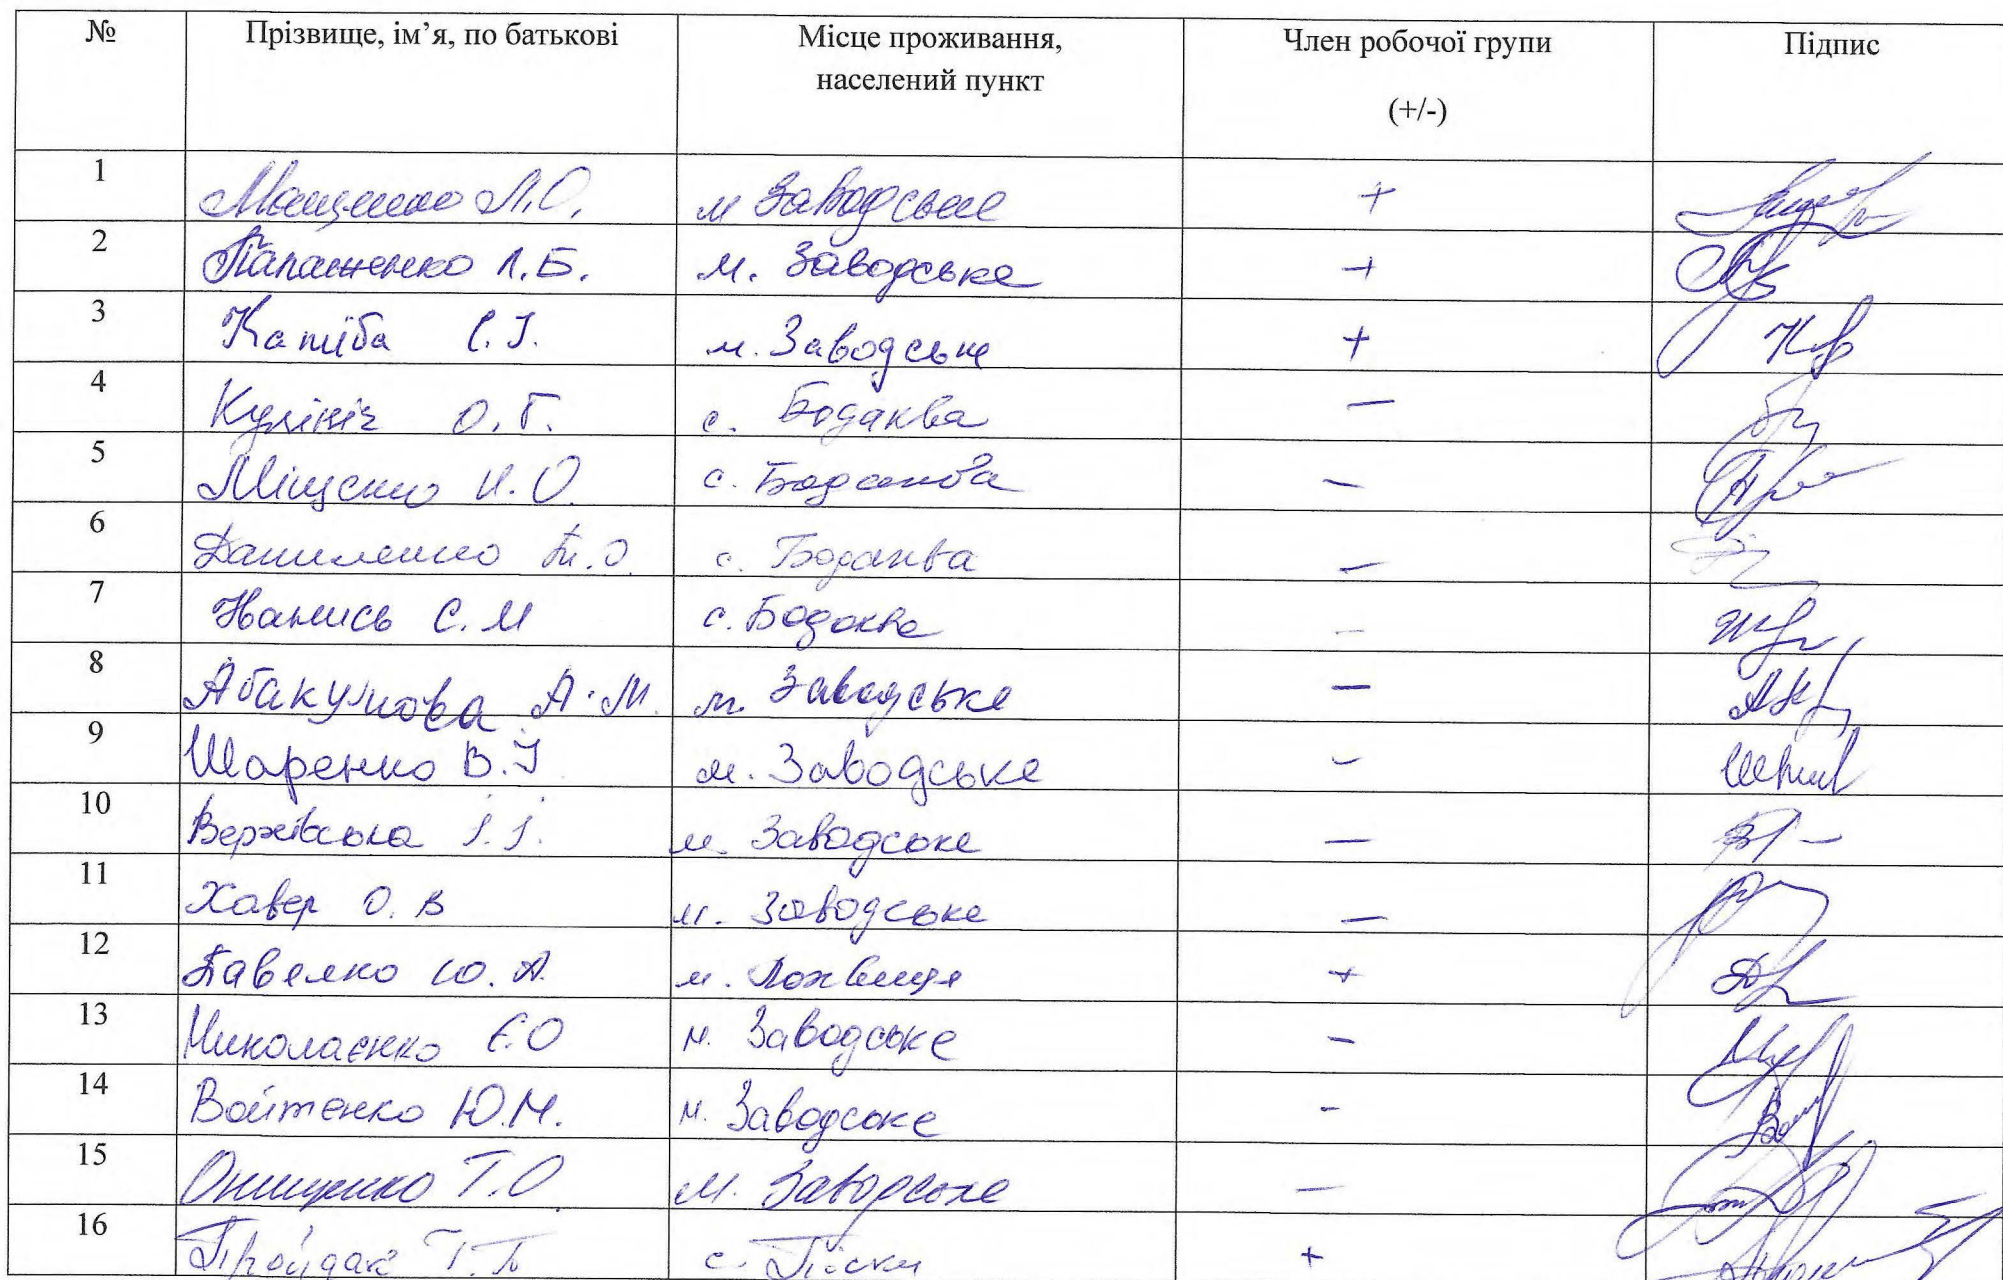 № Прізвище, ім’я, по батькові Місце проживання, Член робочої групи Підпис
населений пункт
(+/-)
1 Мащенко Л.О. м Заводське +
2 Папашенко Л.Б. м. Заводське +
3 Капміба С.І. м. Заводське +
4 Кулініч О.Г. с. Бодаква —
5 Міщенко Н.О. с. Бодаква —
6 Даниленко Т.О. с. Бодаква —
7 Нанись С.М с. Бодаква —
8 Абакумова А.М. м. Заводське —
9 Шаренко В.І м. Заводське -
10 Вержівська І.І. м. Заводське —
11 Хавер О.В м. Заводське —
12 Павелко Ю.А. м. Лохвиця +
13 Миколаєнко Є.О м. Заводське -
14 Войтенко Ю.М. м. Заводське -
15 Онищенко Т.О м. Заводське —
16 Пройдак Т.П с. Піски +